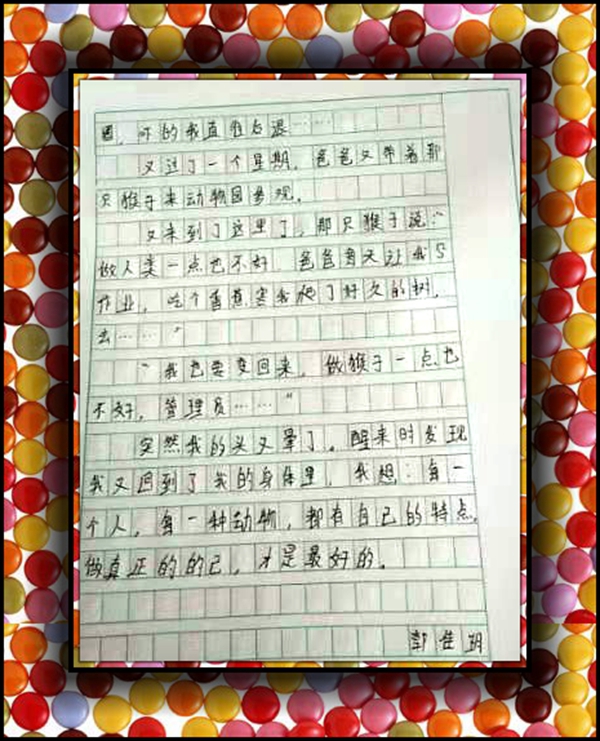 的我直往后退……
又过了一个星期，爸爸又带着那
只猴子来动物园参观。
又来到了这里了，那只猴子说：“
做人类一点也不好，爸爸每天让我写
作业，吃个香蕉害我爬了好久的树，
去……”
“我也要变回来，做猴子一点也
不好，管理员……”
突然我的头又晕了。醒来时发现
我又回到了我的身体里，我想：每一
个人，每一种动物，都有自己的特点，
做真正的的己，才是最好的。
佳玥